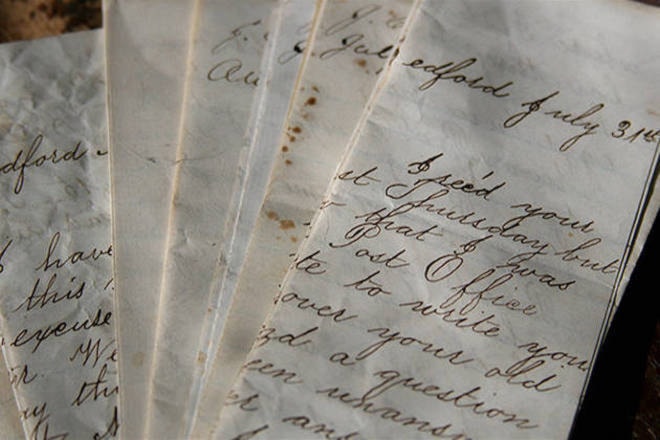 dford
I have
this
excuse
We
J.
Au
J. Jul
edford July 31st
I rec'd your
st Thursday but
that I was
Post Office
te to write you
over your old
d a question
een unans